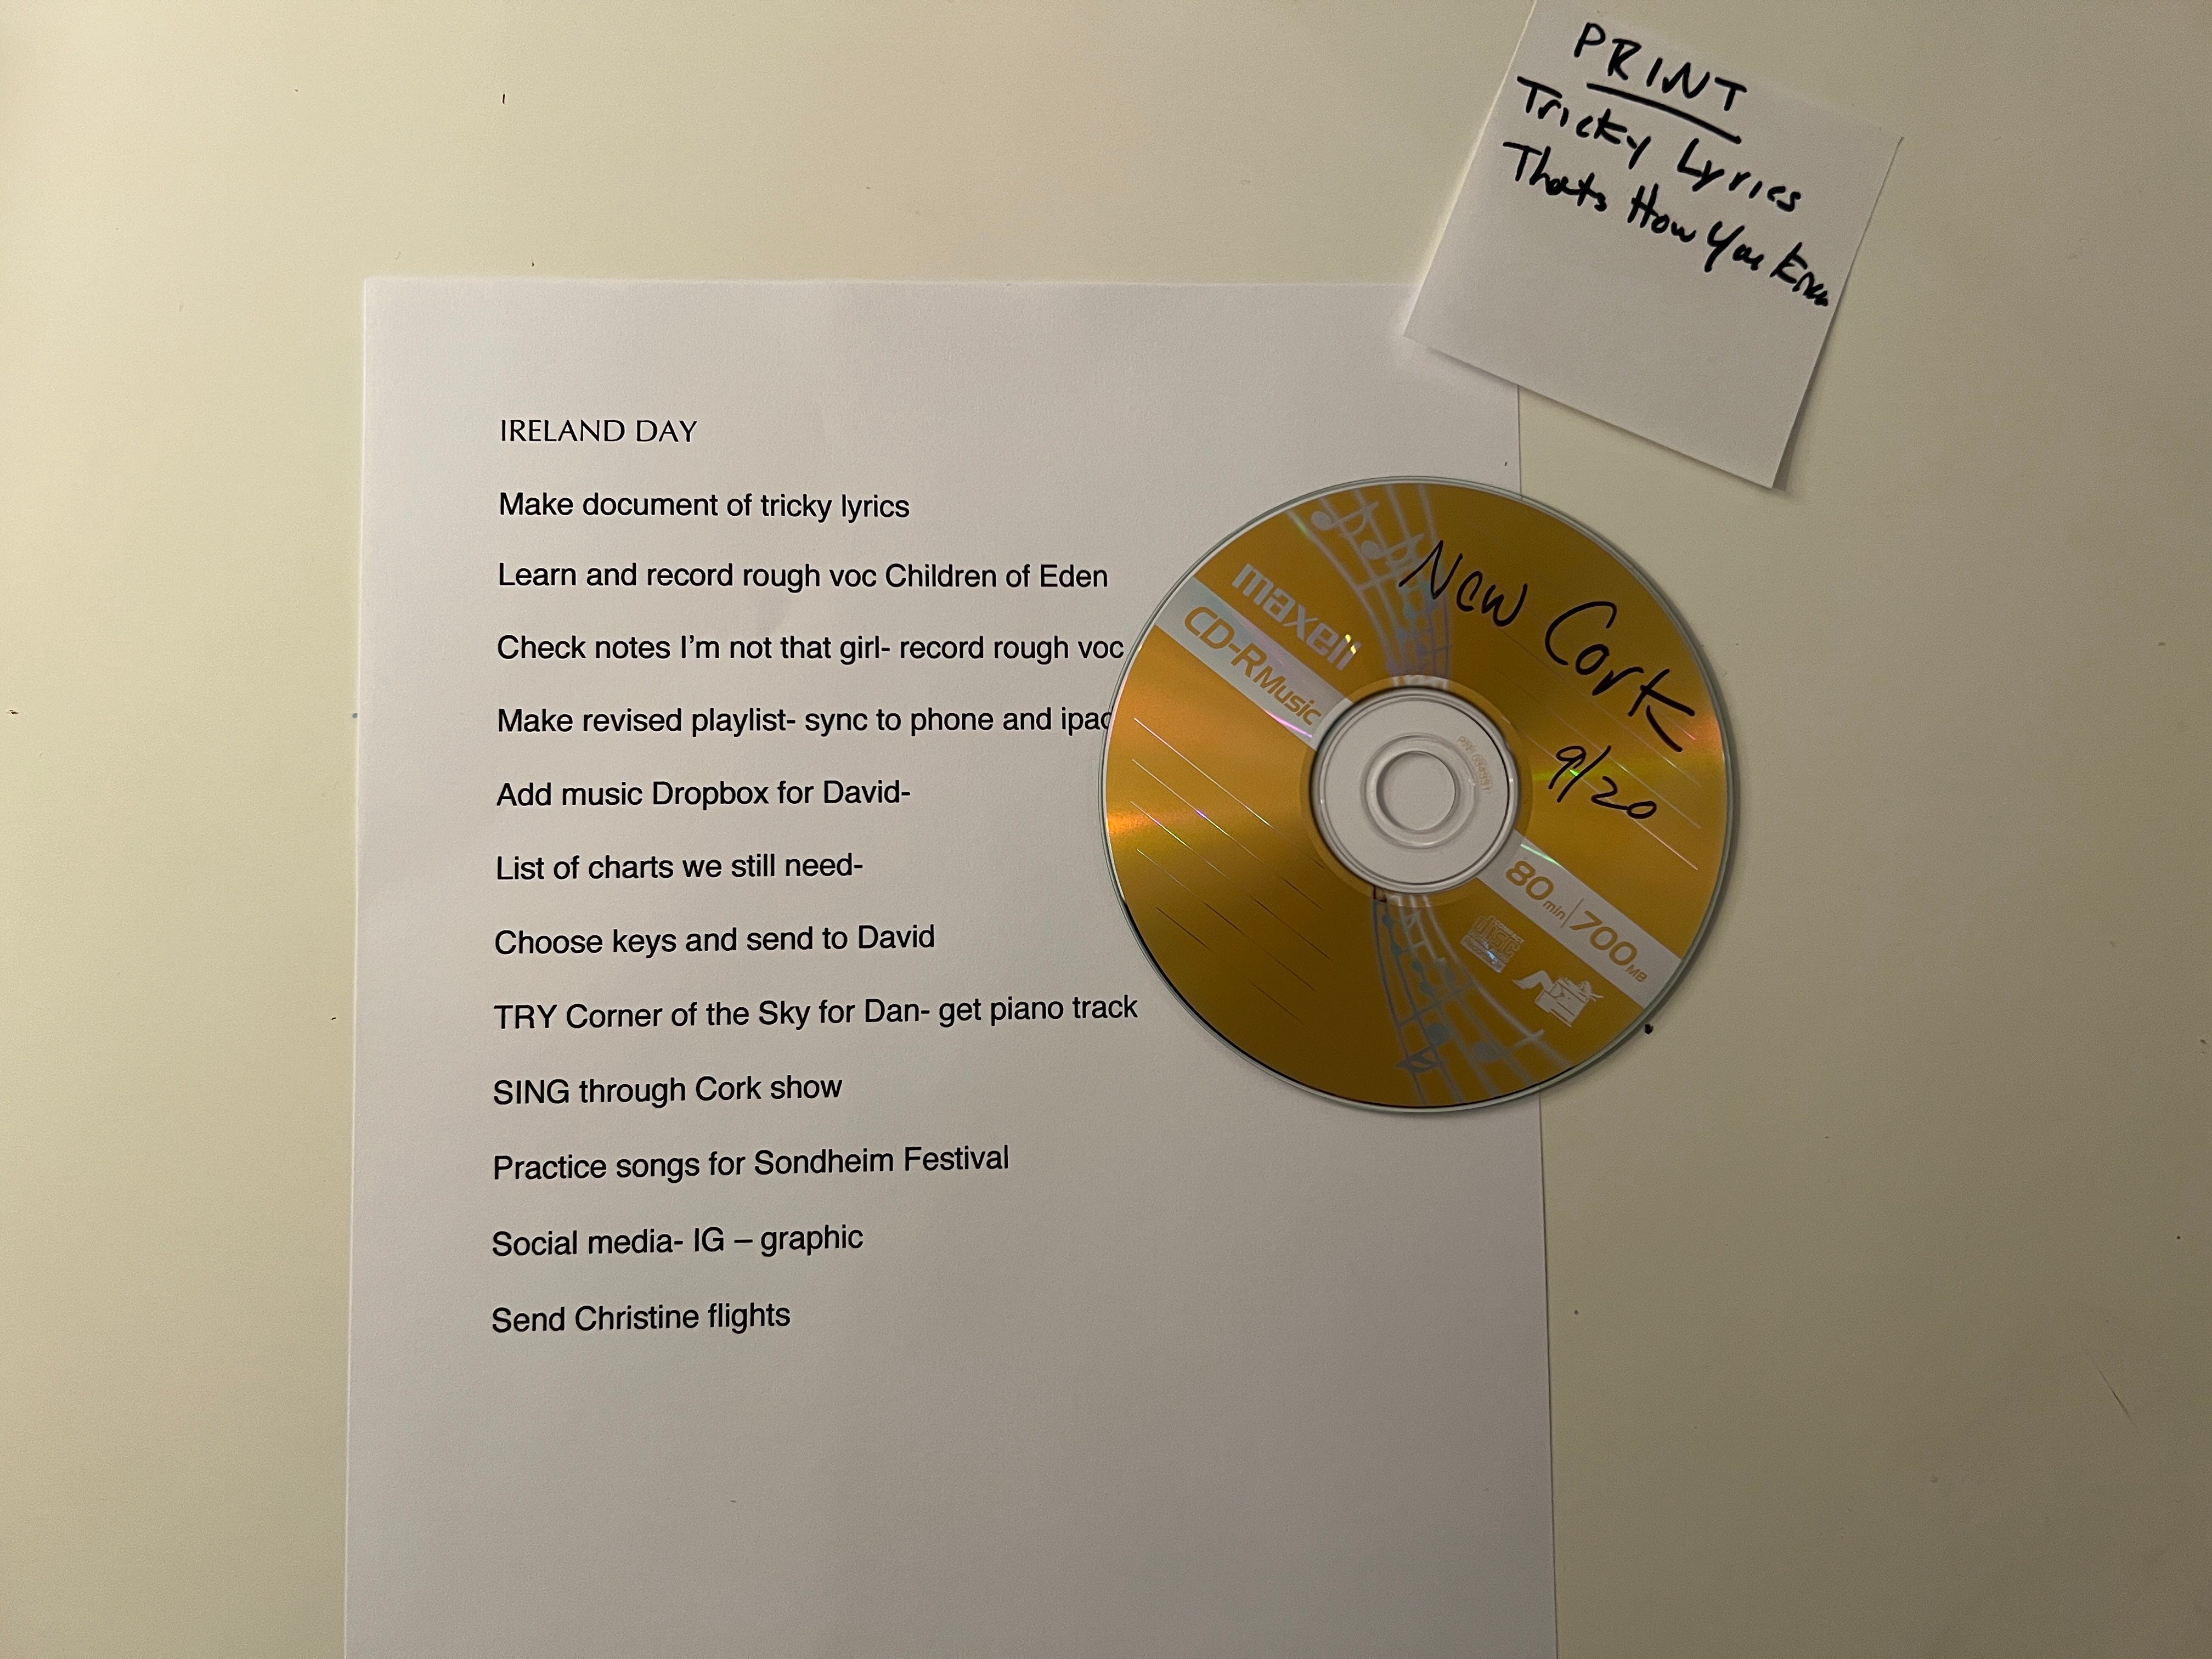 PRINT
Tricky Lyrics
Thats How You Know
IRELAND DAY
Make document of tricky lyrics
Learn and record rough voc Children of Eden
Check notes I'm not that girl- record rough voc
Make revised playlist- sync to phone and ipad
Add music Dropbox for David-
List of charts we still need-
Choose keys and send to David
TRY Corner of the Sky for Dan- get piano track
SING through Cork show
Practice songs for Sondheim Festival
Social media- IG – graphic
Send Christine flights
New Cork
9/20
maxell
CD-R Music
80min/700MB